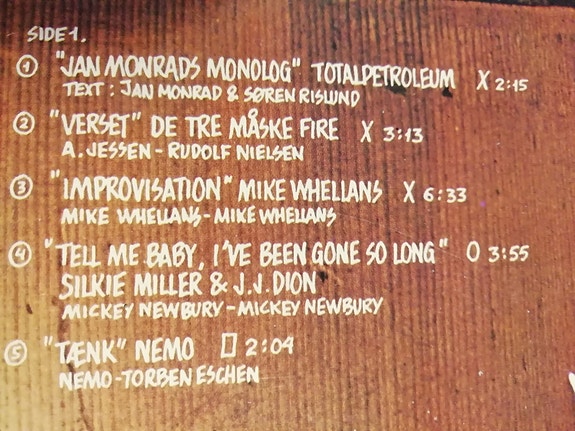 SIDE 1.
① "JAN MONRADS MONOLOG" TOTALPETROLEUM X 2:15
TEXT: JAN MONRAD & SØREN RISLUND
② "VERSET" DE TRE MÅSKE FIRE X 3:13
A. JESSEN - RUDOLF NIELSEN
③ "IMPROVISATION" MIKE WHELLANS X 6:33
MIKE WHELLANS - MIKE WHELLANS
④ "TELL ME BABY, I'VE BEEN GONE SO LONG" O 3:55
SILKIE MILLER & J.J. DION
MICKEY NEWBURY - MICKEY NEWBURY
⑤ "TÆNK" NEMO □ 2:04
NEMO - TORBEN ESCHEN